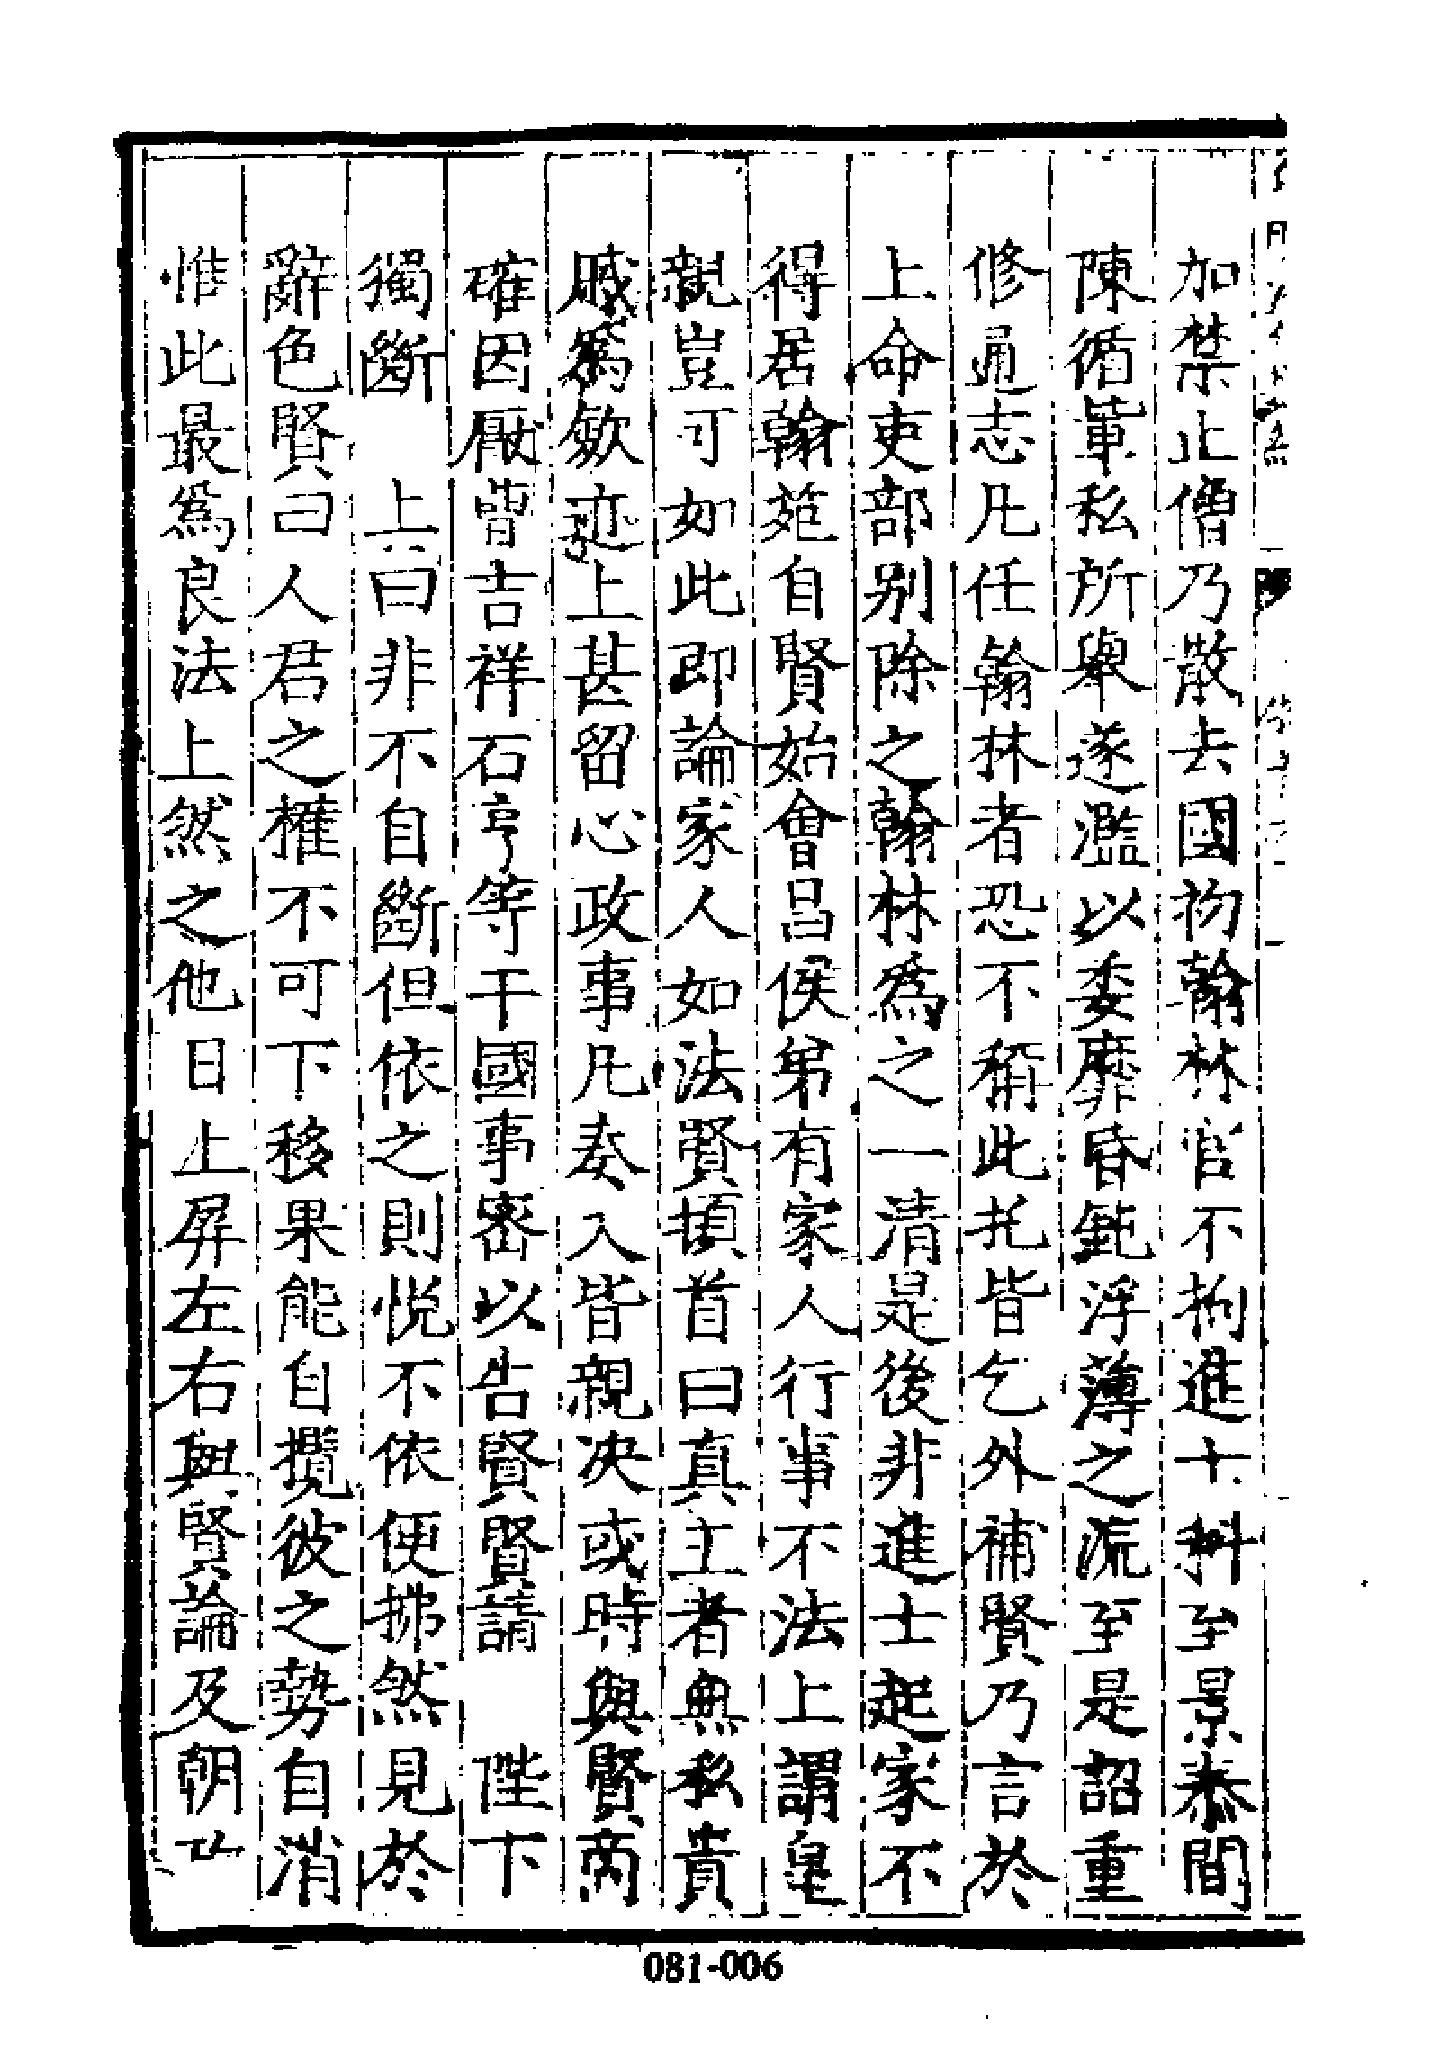 加禁止僧乃散去國初翰林官不拘進士科至景泰間
陳循軰私所舉遂濫以委靡昏鈍浮薄之流至是詔重
修通志凡任翰林者恐不稱此托皆乞外補賢乃言於
上命吏部别除之翰林為之一清是後非進士起家不
得居翰苑自賢始會昌侯弟有家人行事不法上謂皇
親豈可如此即論家人如法賢頓首曰真王者無私貴
戚為斂迹上甚留心政事凡奏入皆親决或時與賢商
確因厭曾吉祥石亨等干國事密以告賢賢請　陛下
獨斷　上曰非不自斷但依之則悦不依便拂然見於
辭色賢曰人君之權不可下移果能自攬彼之勢自消
惟此最為良法上然之他日上屏左右與賢論及朝
081-006